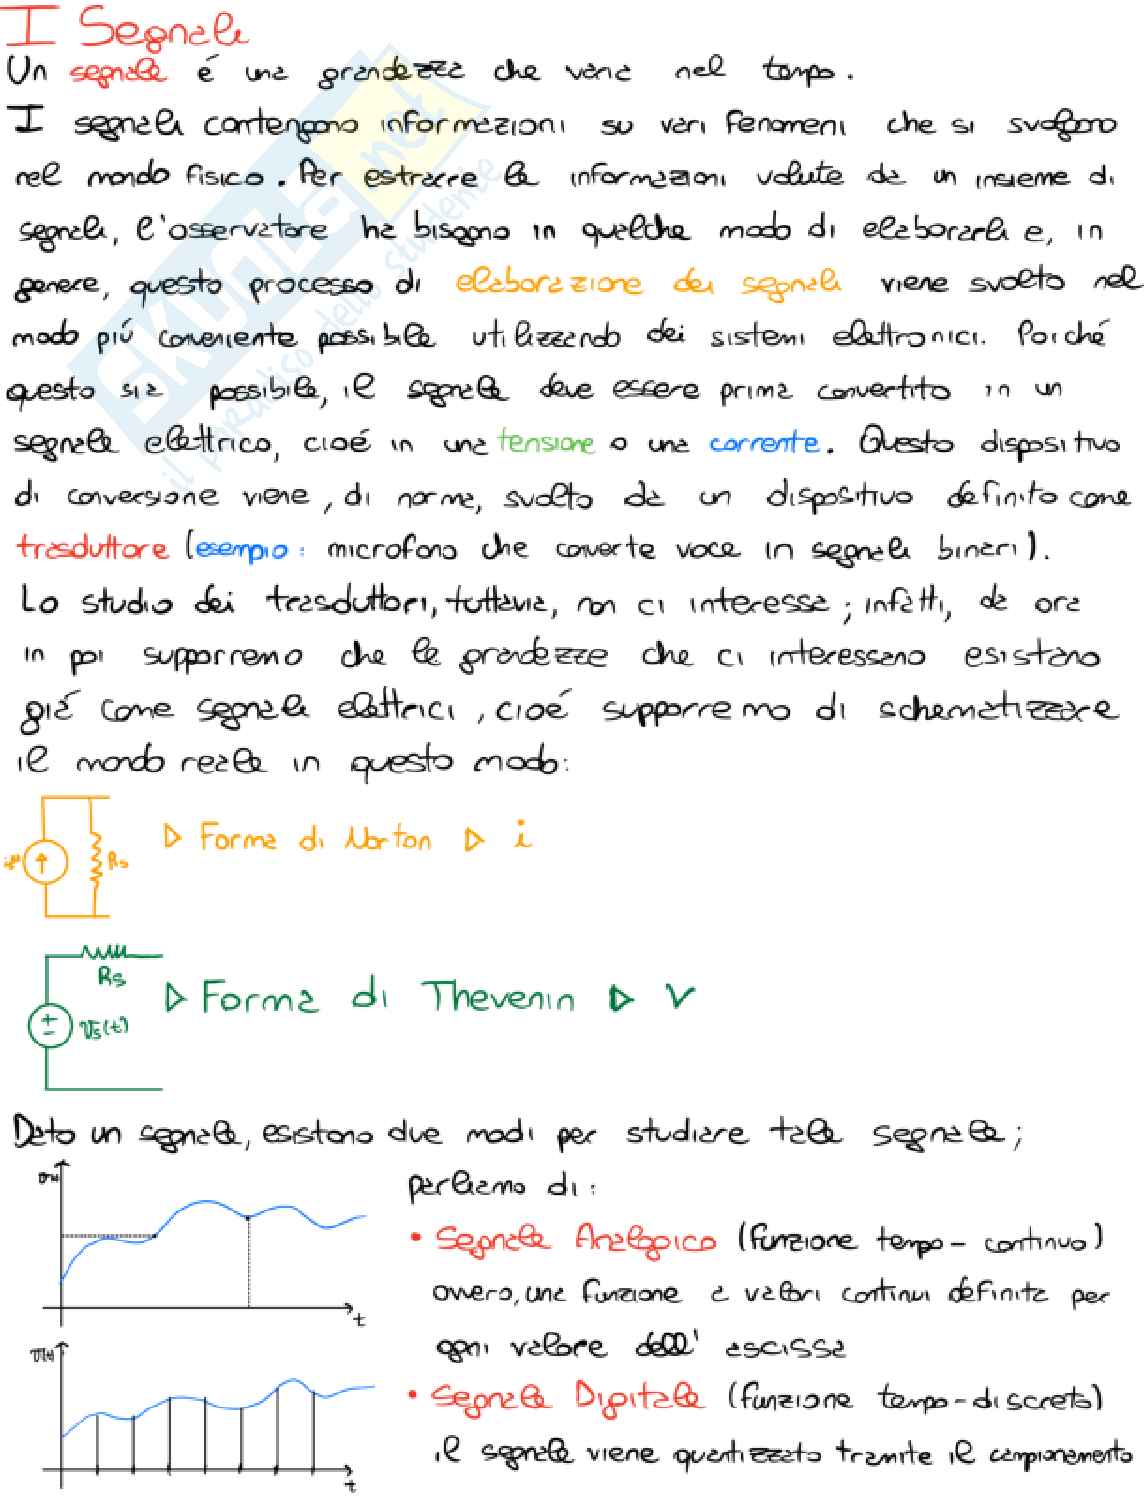 I Segnali
Un segnale é una grandezza che varia nel tempo.
I segnali contengono informazioni su vari fenomeni che si svolgono
nel mondo fisico. Per estrarre le informazioni volute da un insieme di
segnali, l'osservatore ha bisogno in qualche modo di elaborarli e, in
genere, questo processo di elaborazione dei segnali viene svolto nel
modo piú conveniente possibile utilizzando dei sistemi elettronici. Poiché
questo sia possibile, il segnale deve essere prima convertito in un
segnale elettrico, cioé in una tensione o una corrente. Questo dispositivo
di conversione viene, di norma, svolto da un dispositivo definito come
trasduttore (esempio: microfono che converte voce in segnali binari).
Lo studio dei trasduttori, tuttavia, non ci interessa; infatti, da ora
in poi supporremo che le grandezze che ci interessano esistano
giá come segnali elettrici, cioé supporremo di schematizzare
il mondo reale in questo modo:
Rs
▷ Forma di Norton ▷ i
Rs
Vs(t)
▷ Forma di Thevenin ▷ V
Dato un segnale, esistono due modi per studiare tale segnale;
parliamo di:
• Segnale Analogico (funzione tempo-continuo)
ovvero, una funzione a valori continui definita per
ogni valore dell' ascissa
t
• Segnale Digitale (funzione tempo-discreto)
il segnale viene quantizzato tramite il campionamento
t
SKUOLA.net
il paradiso dello studente